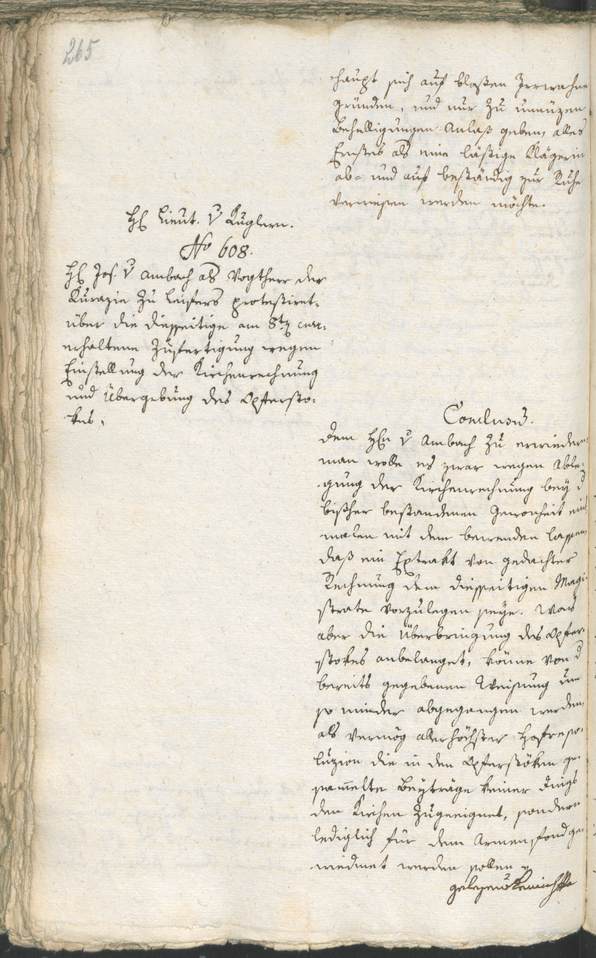 265
haupt sich auf bloßen Irrwahne
gründen, und nur zu unnüzen
Behelligungen Anlaß geben, alles
Ernstes als eine lästige Klägerin
ab- und auf beständig zur Ruhe
verwiesen werden möchte.
H: Lieut. v Kuglern.
No 608.
H: Jos. v Ambach als Vogtherr der
Kurazie zu Leifers protestiret
über die diesseitige am 8ten cur:
erhaltene Zufertigung wegen
Einstellung der Kirchenrechnung
und Übergebung des Opfersto-
kes.
Conclusum.
Dem H: v Ambach zu erwiedern
man wolle es zwar wegen Able-
gung der Kirchenrechnung bey d
bißher bestandenen Gewonheit ein
malen mit dem bewenden lassen,
daß ein Extrakt von gedachter
Rechnung dem diesseitigen Magi
strate vorzulegen seye. Was
aber die Überbringung des Opfer
stokes anbelanget, könne von d
bereits gegebenen Weisung um
so minder abgegangen werden,
als vermög allerhöchster Hofreso
luzion die in den Opferstöken ge
sammelte Beyträge keiner dings
den Kirchen zugeeignet, sondern
lediglich für den Armenfond ge
wiedmet werden sollen